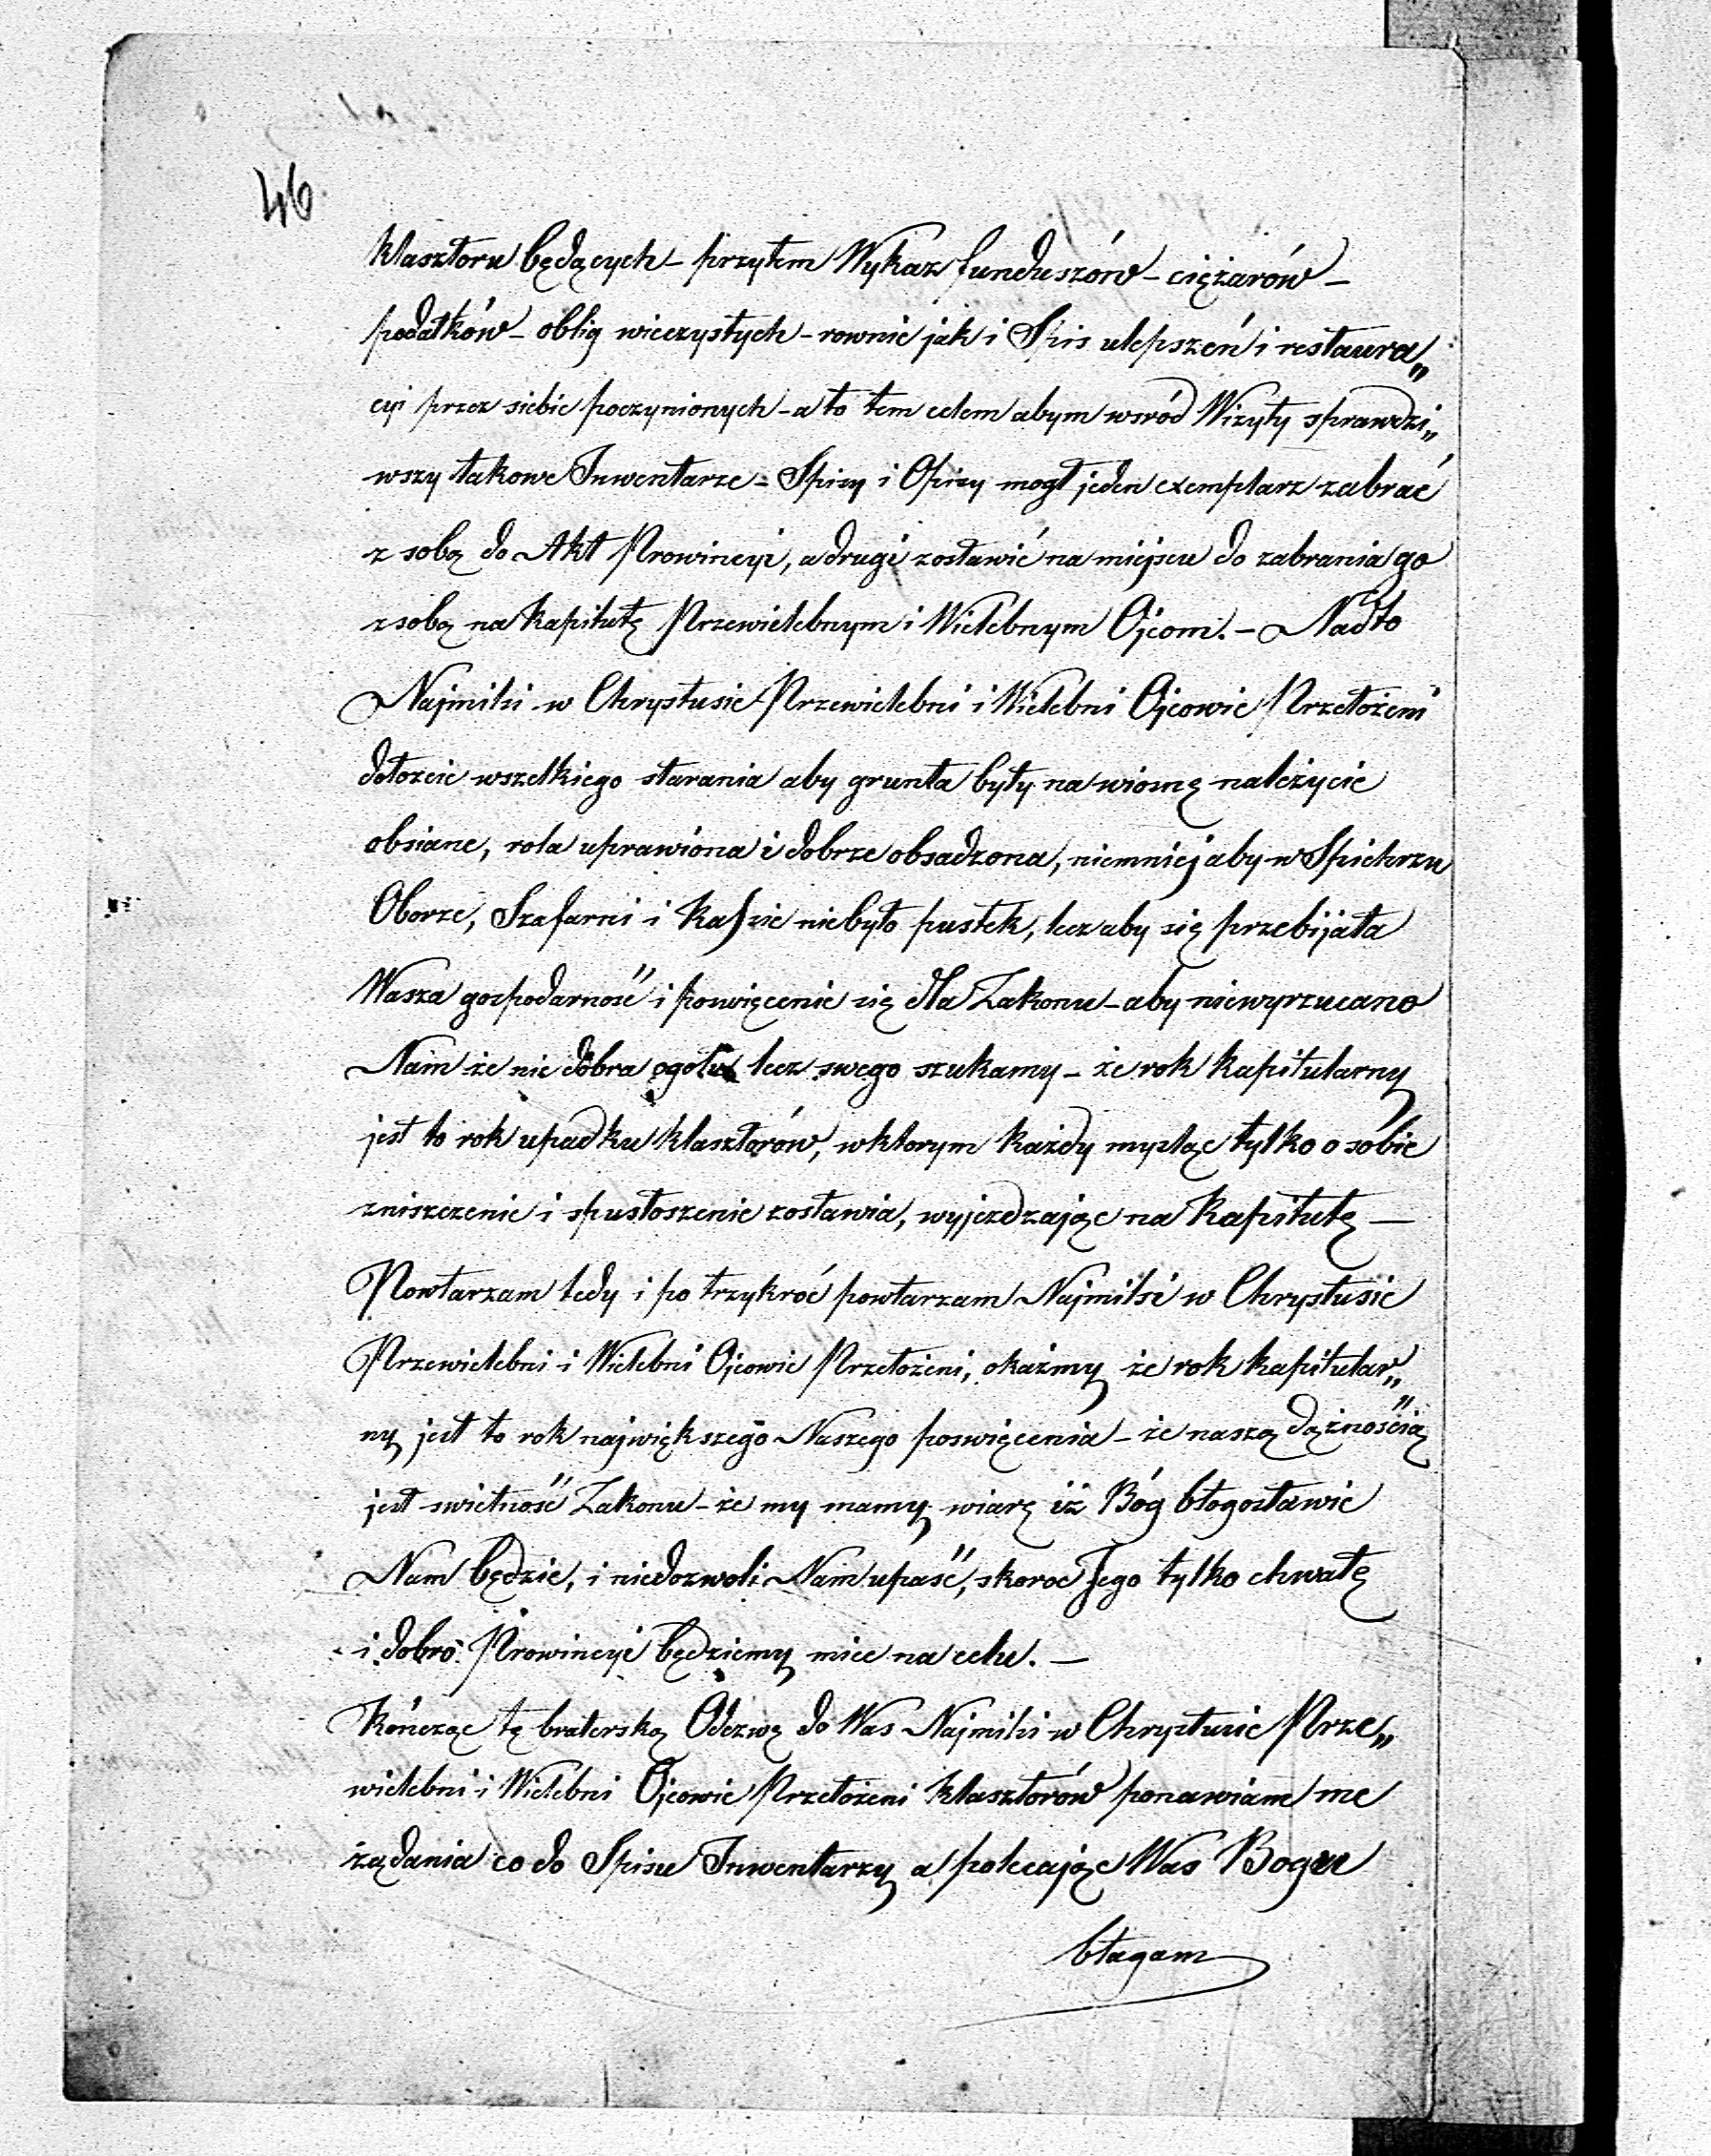 46
klasztoru będących – przytem Wykaz funduszów – ciężarów –
podatków – oblig wieczystych – rownie jak i Spis ulepszeń i restaura„
cyi przez siebie poczynionych – a to tem celem abym wsród Wizyty sprawdzi„
wszy takowe Inwentarze – Spisy i Opisy mogł jeden exemplarz zabrać
z sobą do Akt Prowincyi, a drugi zostawić na miejscu do zabrania go
z sobą na Kapitułę Przewielebnym i Wielebnym Ojcom. – Nadto
Najmilsi w Chrystusie Przewielebni i Wielebni Ojcowie Przełożeni
dołozcie wszelkiego starania aby grunta były na wiosnę należycie
obsiane, rola uprawiona i dobrze obsadzona, niemniej aby w Spichrzu
Oborze, Szafarni i Kassie niebyło pustek, lecz aby się przebijała
Wasza gospodarność i poswięcenie się dla Zakonu – aby niewyrzucano
Nam że nie dobra ogołu lecz swego szukamy – że rok kapitularny
jest to rok upadku klasztorów, w ktorym każdy mysląc tylko o sobie
zniszczenie i spustoszenie zostawia, wyjezdzając na Kapitułę –
Powtarzam tedy i po trzykroć powtarzam Najmilsi w Chrystusie
Przewielebni i Wielebni Ojcowie Przełożeni, okażmy że rok kapitular„
ny jest to rok największego Naszego poswięcenia – że naszą dążnością
jest swietność Zakonu – że my mamy wiarę iż Bóg błogosławić
Nam będzie, i niedozwoli Nam upaść, skoro Jego tylko chwałę
i dobro Prowincyi będziemy miec na celu. –
Kończąc tę braterską Odezwę do Was Najmilsi w Chrystusie Prze„
wielebni i Wielebni Ojcowie Przełożeni klasztorów ponawiam me
żądania co do Spisu Inwentarzy a polecając Was Bogu
błagam